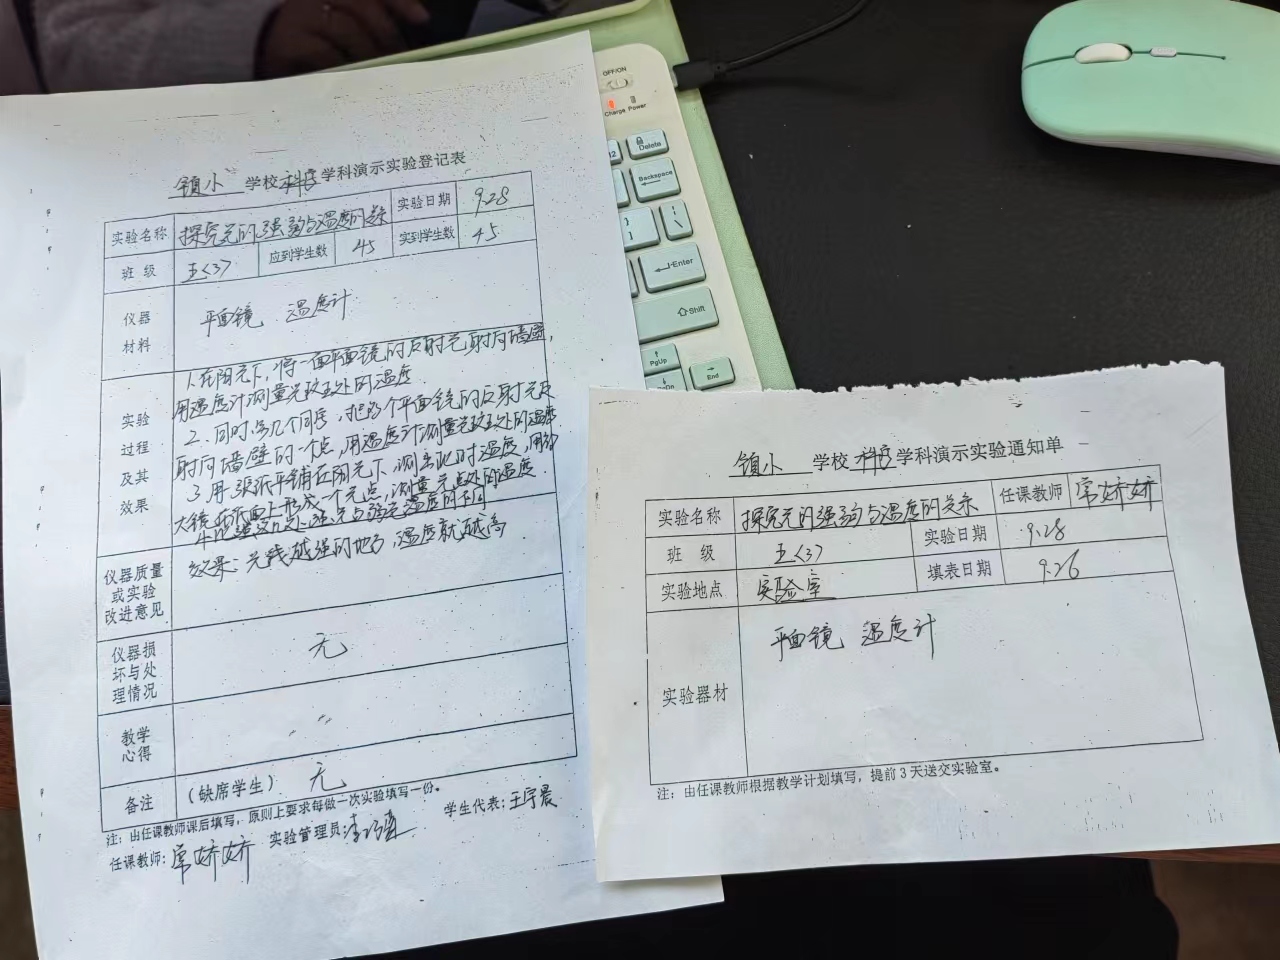 镇小 学校 科学 学科演示实验登记表
实验名称 探究光的强弱与温度的关系 实验日期 9.28
班 级 五<3> 应到学生数 45 实到学生数 45
仪器材料 平面镜 温度计
实验过程及其效果
1、在阳光下,将一面平面镜的反射光射向墙壁,
用温度计测量光斑处的温度
2、同时多几个同学,把多个平面镜的反射光反
射向墙壁的一个点,用温度计测量光斑处的温度
3 用 张纸平铺在阳光下,测出此时温度,用放
大镜在纸面上形成一个光点,测量光点处的温度
效果:光线越强的地方,温度就越高
仪器质量或实验改进意见
仪器损坏与处理情况 无
教学心得
备注 (缺席学生) 无
注:由任课教师课后填写,原则上要求每做一次实验填写一份。
任课教师:常娇娇 实验管理员: 学生代表:王宇晨
镇小 学校 科学 学科演示实验通知单
实验名称 探究光的强弱与温度的关系 任课教师 常娇娇
班 级 五<3> 实验日期 9.28
实验地点 实验室 填表日期 9.26
实验器材 平面镜 温度计
注:由任课教师根据教学计划填写,提前3天送交实验室。
OFF/ON
Charge Power
Delete
Backspace
Enter
Shift
PgUp
PgDn
End